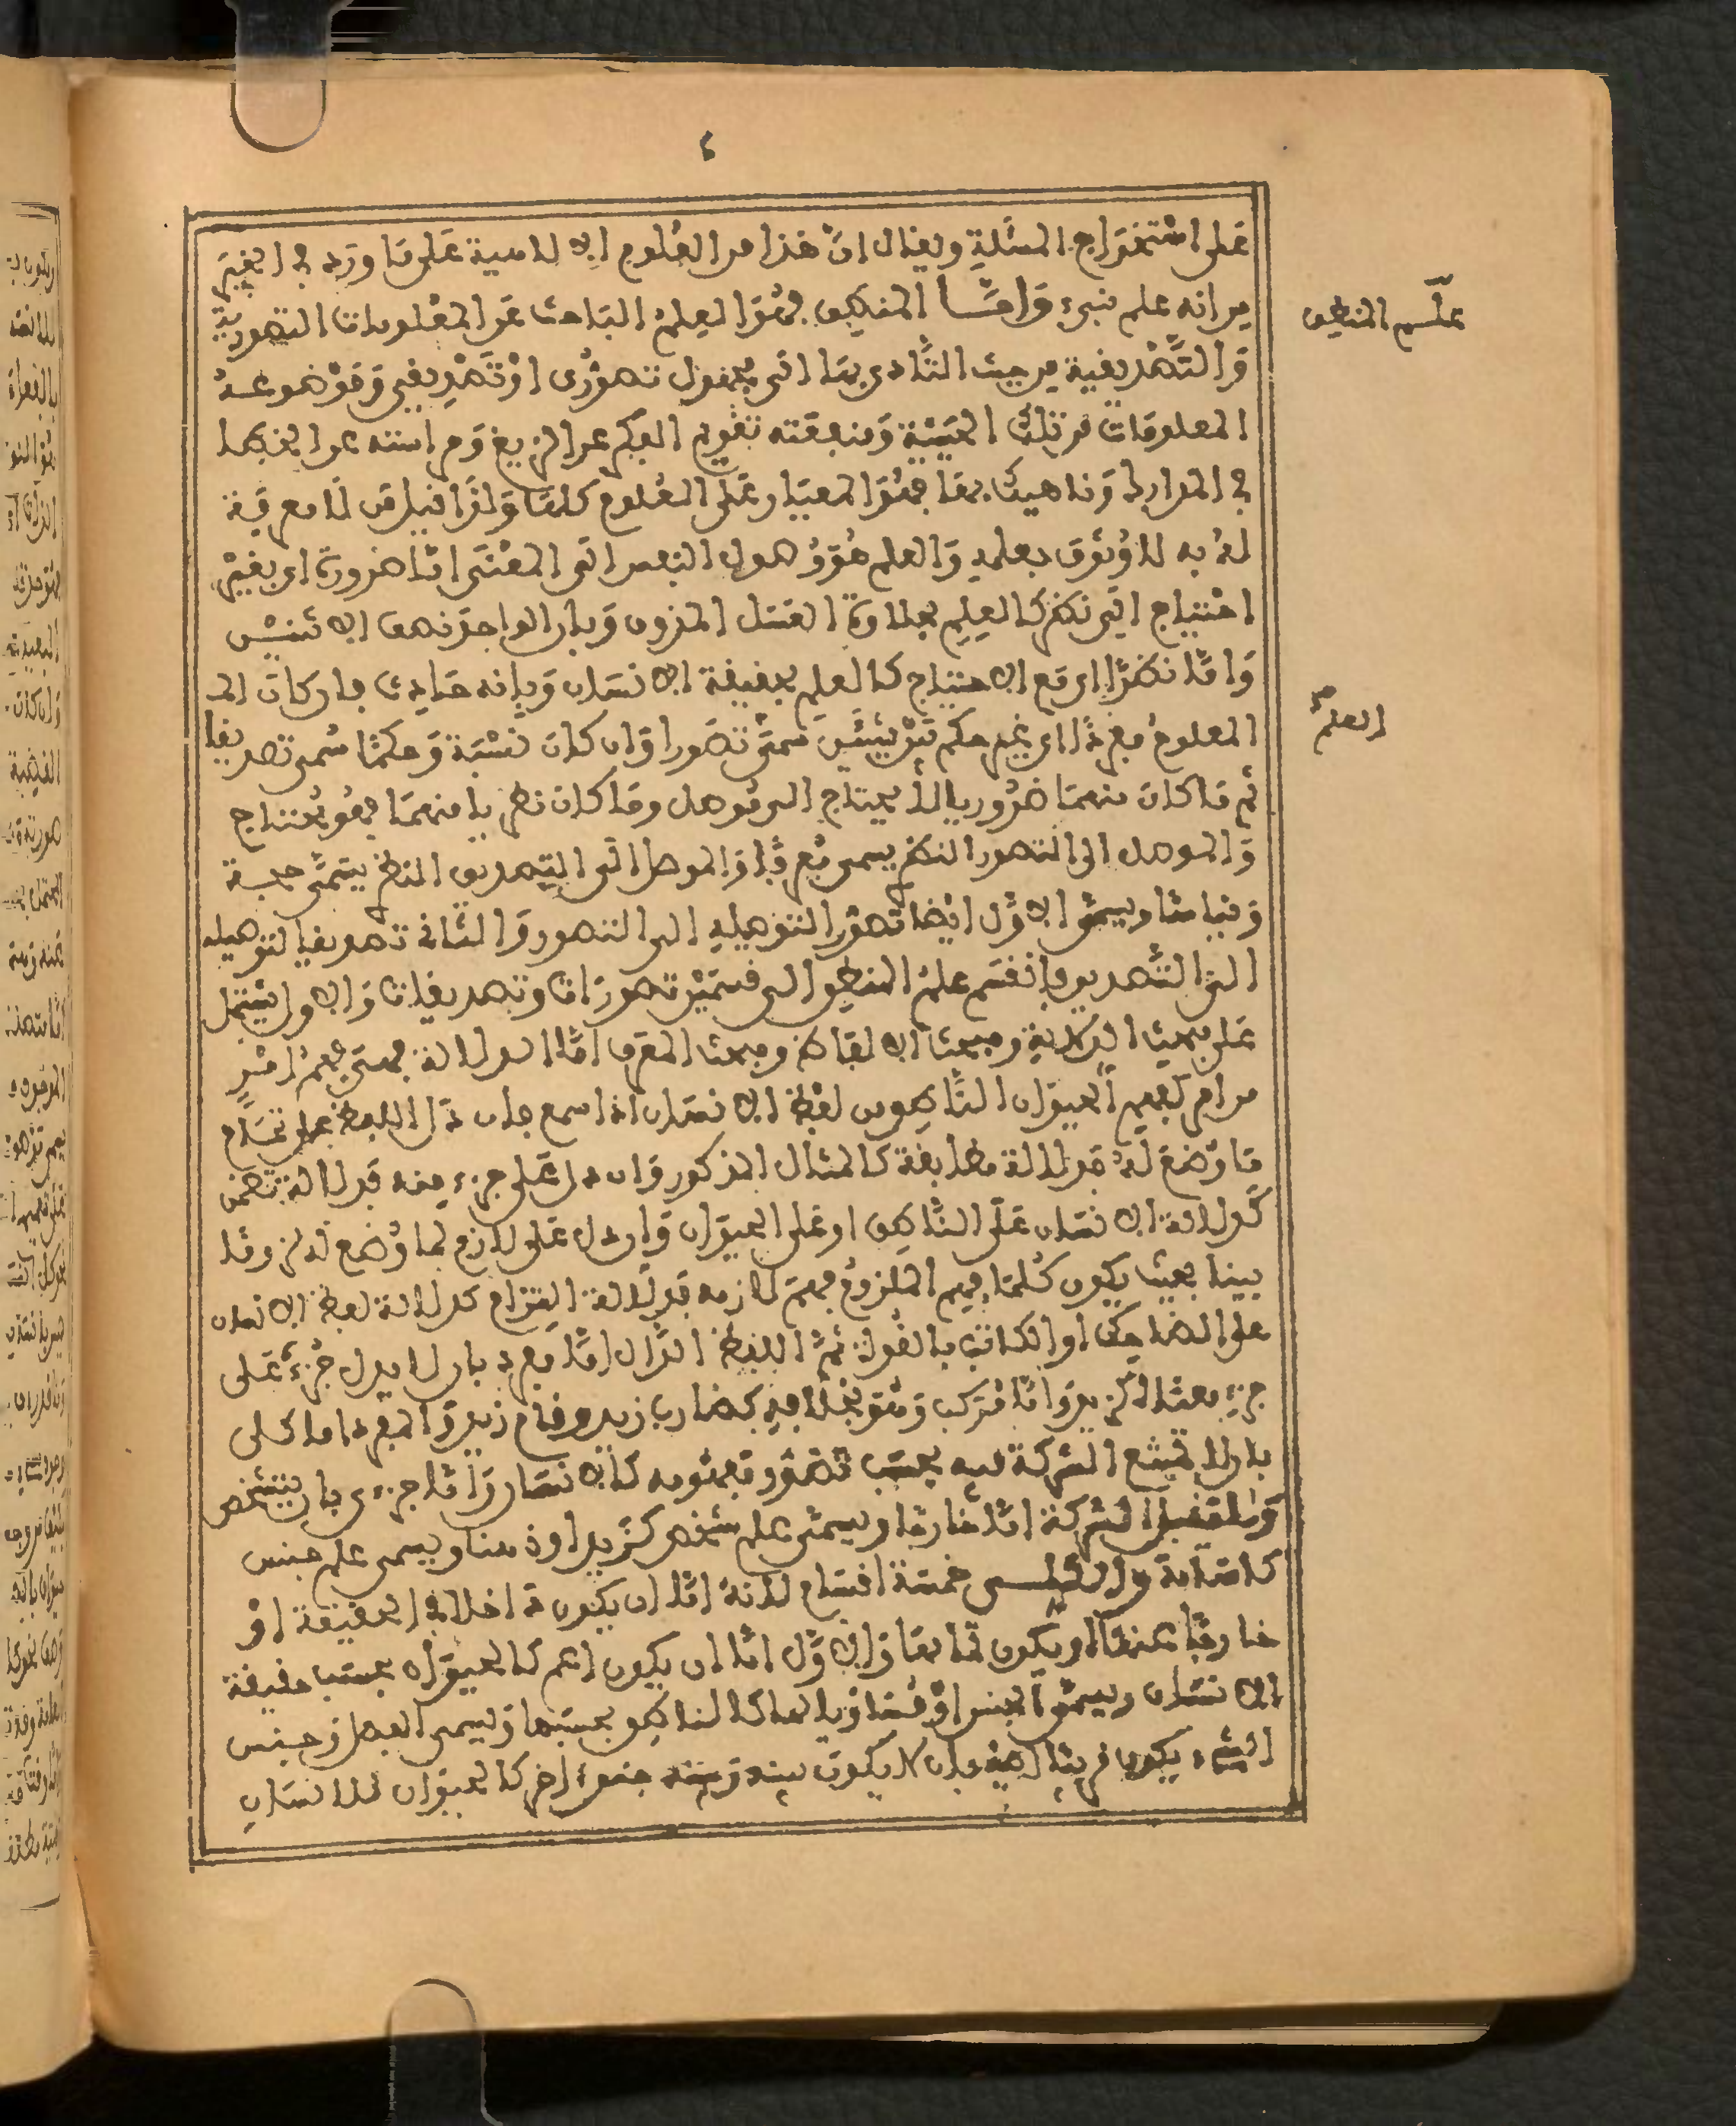 ٤
على استخراج المسئلة ويقال ان هذا من العلوم الاسلامية على ما ورد في الخبر
من انه علم نبيء واما المنطق فهو العلم الباحث عن المعلومات التصورية
علم المنطق
والتصديقية من حيث التأدي بها الى مجهول تصوري او تصديقي وموضوعه
المعلومات من تلك الحيثية ومنفعته تقويم الفكر عن الزيغ وحراسته عن الخطإ
في المدارك وناهيك بها فهو المعيار على العلوم كلها ولذا قيل من لا معرفة
له به لا وثوق بعلمه والعلم هو وصول النفس الى المعنى اما ضرورة اي بغير
احتياج الى نظر كالعلم بحلاوة العسل المذوق وبان الواحد نصف الاثنين
واما نظرا اي مع الاحتياج كالعلم بحقيقة الانسان وبانه حادث فان كان
العلم
المعلوم مفردا اي غير حكم بين شيئين سمي تصورا وان كان نسبة وحكما سمي تصديقا
ثم ما كان منهما ضروريا لا يحتاج الى موصل وما كان نظريا منهما فهو محتاج
والموصل الى التصور النظري يسمى معرفا والموصل الى التصديق النظري يسمى حجة
وقياسا ويسمى الاول ايضا تصورا لتوصيله الى التصور والثاني تصديقا لتوصيله
الى التصديق فانقسم علم المنطق الى قسمين تصورات وتصديقات والاول يشتمل
على مبحث الدلالة ومبحث الالفاظ ومبحث المعرف اما الدلالة فهي فهم امر
من امر كفهم الحيوان الناطق من لفظ الانسان اذا سمع فان دل اللفظ على تمام
ما وضع له فدلالة مطابقة كالمثال المذكور وان دل على جزء منه فدلالة تضمن
كدلالة الانسان على الناطق او على الحيوان وان دل على لازم لما وضع له لزوما
بينا بحيث يكون كلما فهم الملزوم فهم لازمه فدلالة التزام كدلالة لفظ الانسان
على الضاحك او الكاتب بالقوة ثم اللفظ الدال اما مفرد بان لا يدل جزء على
جزء معناه كزيد واما مركب وهو بخلافه كضارب زيد وقام زيد والمفرد اما كلي
بان لا تمتنع الشركة فيه بحسب تصور مفهومه كالانسان واما جزءي بان يتشخص
ولا يقبل الشركة اما خارجا ويسمى علم شخص كزيد او ذهنا ويسمى علم جنس
كاسامة والكلي خمسة اقسام لانه اما ان يكون داخلا في الحقيقة او
خارجا عنها او يكون تمامها والاول اما ان يكون اعم كالحيوان بحسب حقيقة
الانسان ويسمى الجنس او مساويا لها كالناطق بحسبها ويسمى الفصل وجنس
الشيء يكون قريبا اليه بان لا يكون بينه وبينه جنس ءاخر كالحيوان للانسان